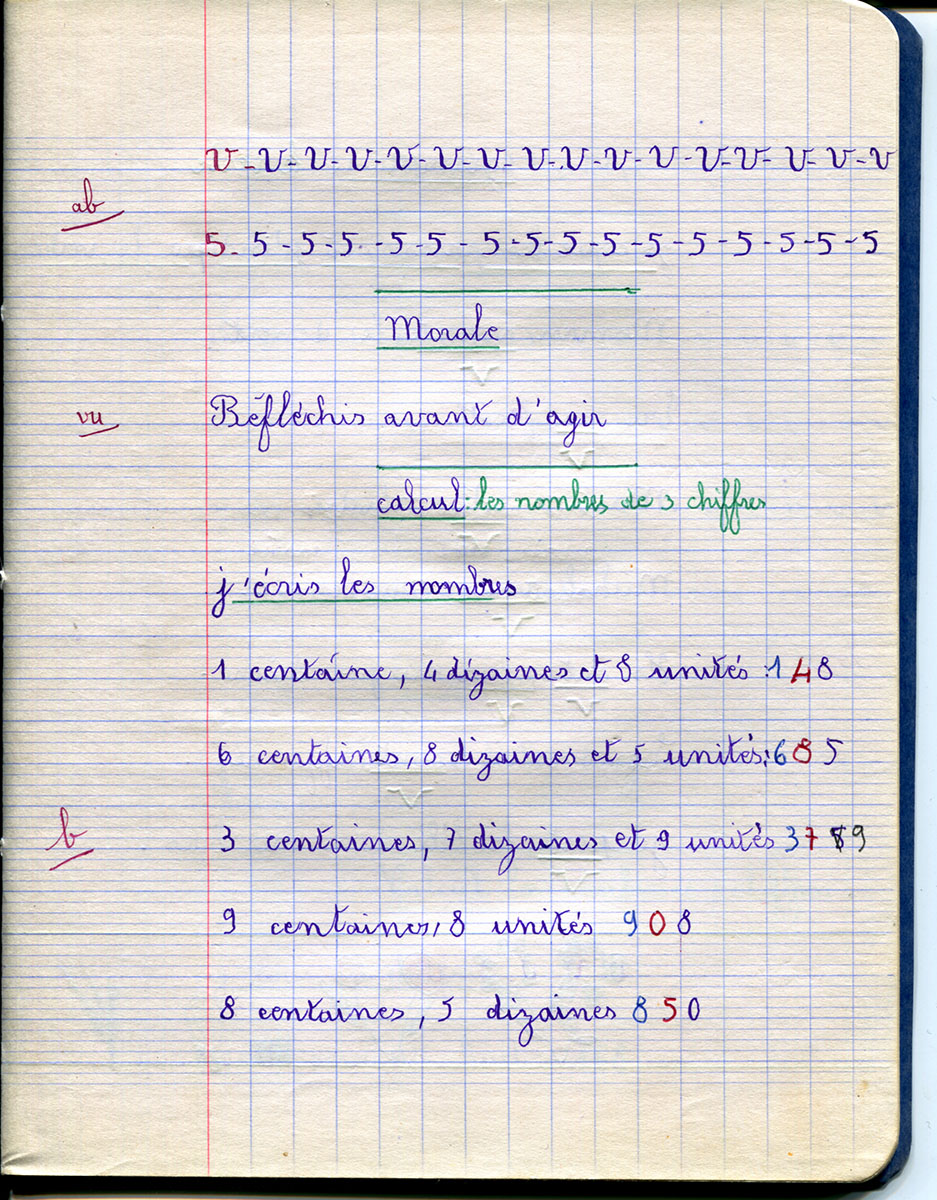 v - v - v - v - v - v - v - v - v - v - v - v - v - v - v - v
ab
5 - 5 - 5 - 5 - 5 - 5 - 5 - 5 - 5 - 5 - 5 - 5 - 5 - 5 - 5 - 5
Morale
vu
Réfléchis avant d'agir
calcul : les nombres de 3 chiffres
j'écris les nombres
1 centaine, 4 dizaines et 8 unités : 148
6 centaines, 8 dizaines et 5 unités : 685
b
3 centaines, 7 dizaines et 9 unités 379
9 centaines, 8 unités 908
8 centaines, 5 dizaines 850